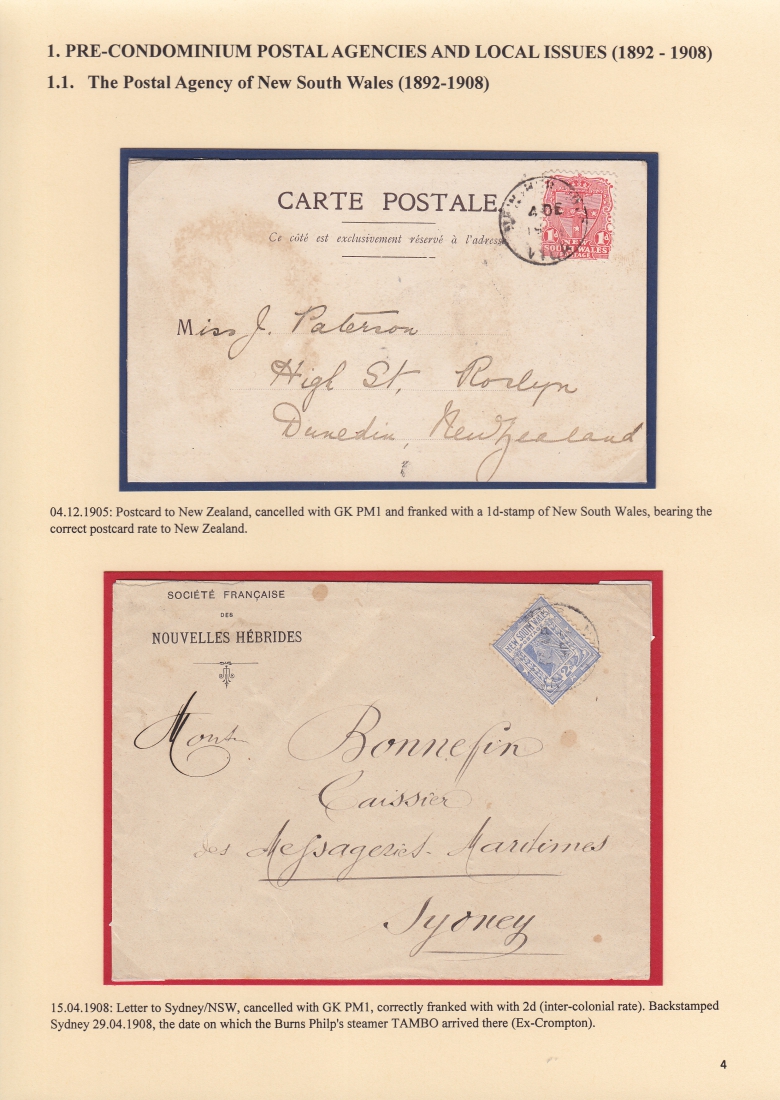 1. PRE-CONDOMINIUM POSTAL AGENCIES AND LOCAL ISSUES (1892 - 1908)
1.1. The Postal Agency of New South Wales (1892-1908)
CARTE POSTALE
Ce côté est exclusivement réservé à l'adresse
4 DE
VILA
1d 1d
NEW
SOUTH WALES
POSTAGE
Miss J. Paterson
High St, Roslyn
Dunedin, New Zealand
04.12.1905: Postcard to New Zealand, cancelled with GK PM1 and franked with a 1d-stamp of New South Wales, bearing the
correct postcard rate to New Zealand.
SOCIÉTÉ FRANÇAISE
DES
NOUVELLES HÉBRIDES
NEW SOUTH WALES
Bonnefin
Caissier
des Messageries Maritimes
Sydney
15.04.1908: Letter to Sydney/NSW, cancelled with GK PM1, correctly franked with with 2d (inter-colonial rate). Backstamped
Sydney 29.04.1908, the date on which the Burns Philp's steamer TAMBO arrived there (Ex-Crompton).
4